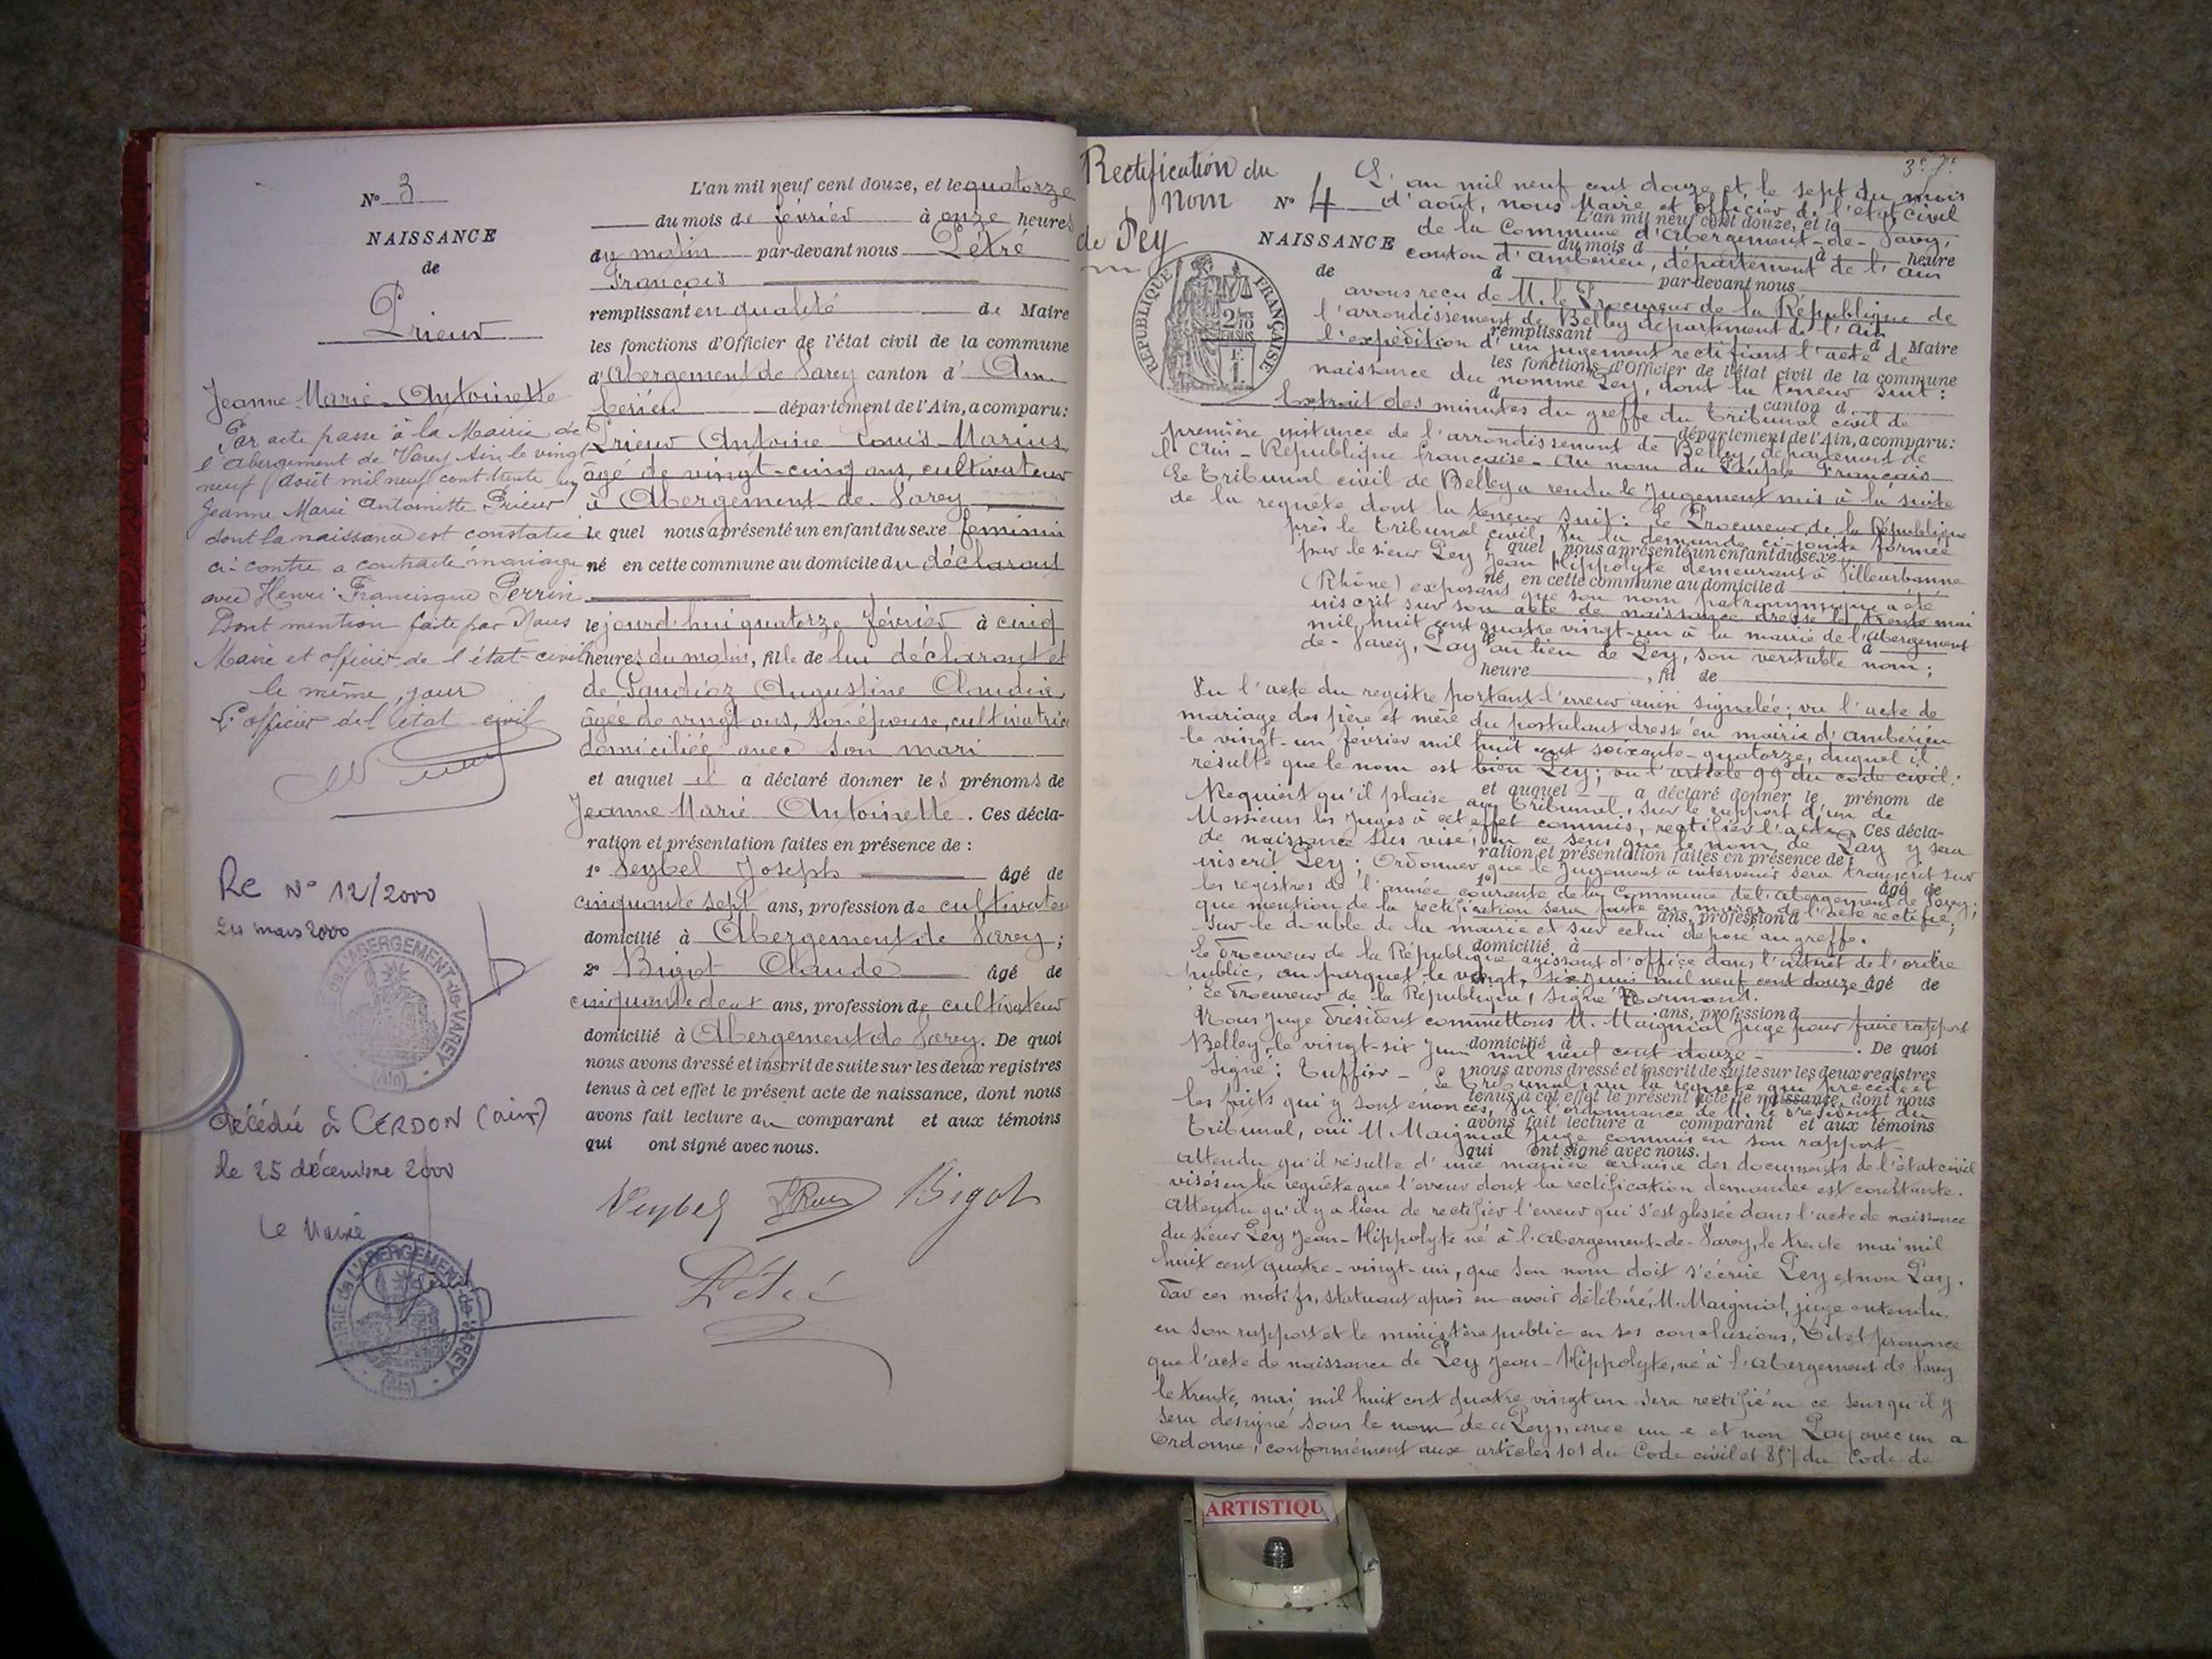 N° 3
NAISSANCE
de
Prieur
Jeanne Marie Antoinette
Par acte passé à la Mairie de
l'Abergement de Varey Ain le vingt
neuf août mil neuf cent trente un
Jeanne Marie Antoinette Prieur
dont la naissance est constatée
ci-contre a contracté mariage
avec Henri Francisque Perrin
Dont mention faite par Nous
Maire et officier de l'état-civil
le même jour
L'officier de l'état civil
Re N° 12/2000
24 mars 2000
MAIRIE de L'ABERGEMENT-de-VAREY
(Ain)
décédée à CERDON (ain)
le 25 décembre 2000
Le Maire
MAIRIE de L'ABERGEMENT-de-VAREY
(Ain)
L'an mil neuf cent douze, et le quatorze
du mois de février à onze heures
du matin par-devant nous Pétré
François
remplissant en qualité de Maire
les fonctions d'Officier de l'état civil de la commune
d'Abergement de Varey canton d' Am
bérieu département de l'Ain, a comparu:
Prieur Antoine Louis Marius
âgé de vingt-cinq ans, cultivateur
à Abergement-de-Varey
le quel nous a présenté un enfant du sexe féminin
né en cette commune au domicile du déclarant
le jourd'hui quatorze février à cinq
heures du matin, fille de lui déclarant et
de Augustine Claudia
âgée de vingt ans, son épouse, cultivatrice
domiciliée avec son mari
et auquel il a déclaré donner les prénoms de
Jeanne Marie Antoinette. Ces décla-
ration et présentation faites en présence de :
1° Veybel Joseph âgé de
cinquante sept ans, profession de cultivateur
domicilié à Abergement de Varey;
2° Bigot Claude âgé de
cinquante deux ans, profession de cultivateur
domicilié à Abergement de Varey. De quoi
nous avons dressé et inscrit de suite sur les deux registres
tenus à cet effet le présent acte de naissance, dont nous
avons fait lecture au comparant et aux témoins
qui ont signé avec nous.
Veybel Bigot
Pétré
Rectification du
nom
de Pey
3e
N° 4
NAISSANCE
de
RÉPUBLIQUE FRANÇAISE
L'an mil neuf cent douze et le sept du mois
d'août, nous Maire et officier de l'état civil
L'an mil neuf cent douze, et le
de la Commune d'Abergement-de-Varey,
du mois d à heure
canton d'Ambérieu, département de l'Ain
d par-devant nous
avons reçu de M. le Procureur de la République de
l'arrondissement de Belley département de l'Ain
remplissant d Maire
l'expédition d'un jugement rectifiant l'acte de
les fonctions d'Officier de l'état civil de la commune
naissance du nommé Pey, dont la teneur suit :
d canton d
Extrait des minutes du greffe du tribunal civil de
département de l'Ain, a comparu:
première instance de l'arrondissement de Belley, département de
l'Ain - République française - Au nom du Peuple Français
Le Tribunal civil de Belley a rendu le Jugement mis à la suite
de la requête dont la teneur suit : Le Procureur de la République
près le Tribunal civil, Vu la demande ci-jointe formée
l quel nous a présenté un enfant du sexe
par le sieur Pey Jean Hippolyte demeurant à Villeurbanne
né en cette commune au domicile d
(Rhône) exposant que son nom patronymique a été
inscrit sur son acte de naissance dressé le trente mai
mil huit cent quatre vingt-un à la mairie de l'Abergement
à
de-Varey, Pay au lieu de Pey, son véritable nom ;
heure , fil de
Vu l'acte du registre portant l'erreur ainsi signalée; vu l'acte de
mariage des père et mère du postulant dressé en mairie d'Ambérieu
le vingt-un février mil huit cent soixante-quatorze, duquel il
résulte que le nom est bien Pey; vu l'article 99 du code civil.
et auquel a déclaré donner le prénom de
Requiert qu'il plaise au Tribunal, sur le rapport d'un de
Messieurs les Juges à cet effet commis, rectifier l'acte
Ces décla-
de naissance sus visé, en ce sens que le nom de Pay y sera
ration et présentation faites en présence de :
inscrit Pey ; Ordonner que le Jugement à intervenir sera transcrit sur
1° âgé de
les registres de l'année courante de la Commune de l'Abergement de Varey;
que mention de la rectification sera faite en marge de l'acte rectifié,
ans, profession d
sur le double de la mairie et sur celui déposé au greffe.
domicilié à
Le Procureur de la République agissant d'office dans l'intérêt de l'ordre
public, au parquet le vingt-six juin mil neuf cent douze
âgé de
Le Procureur de la République, signé Normand.
ans, profession d
Nous Juge Président commettons M. Maigniol Juge pour faire rapport
domicilié à . De quoi
Belley, le vingt-six Juin mil neuf cent douze -
nous avons dressé et inscrit de suite sur les deux registres
Signé : Tuffier - Le Tribunal, vu la requête qui précède et
tenus à cet effet le présent acte de naissance, dont nous
les faits qui y sont énoncés, Vu l'ordonnance de M. le Président du
avons fait lecture a comparant et aux témoins
Tribunal, ouï M. Maigniol Juge commis en son rapport
qui ont signé avec nous.
Attendu qu'il résulte d'une manière certaine des documents de l'état civil
visés en la requête que l'erreur dont la rectification demandée est constante.
Attendu qu'il y a lieu de rectifier l'erreur qui s'est glissée dans l'acte de naissance
du sieur Pey Jean-Hippolyte né à l'Abergement-de-Varey, le trente mai mil
huit cent quatre-vingt-un, que son nom doit s'écrire Pey et non Pay.
Par ces motifs, statuant après en avoir délibéré, M. Maigniol, juge entendu
en son rapport et le ministère public en ses conclusions, Dit et prononce
que l'acte de naissance de Pey Jean-Hippolyte, né à l'Abergement de Varey
le trente mai mil huit cent quatre vingt un sera rectifié en ce sens qu'il y
sera désigné sous le nom de « Pey » avec un e et non Pay avec un a
Ordonne, conformément aux articles 101 du Code civil et 857 du Code de
ARTISTIQU